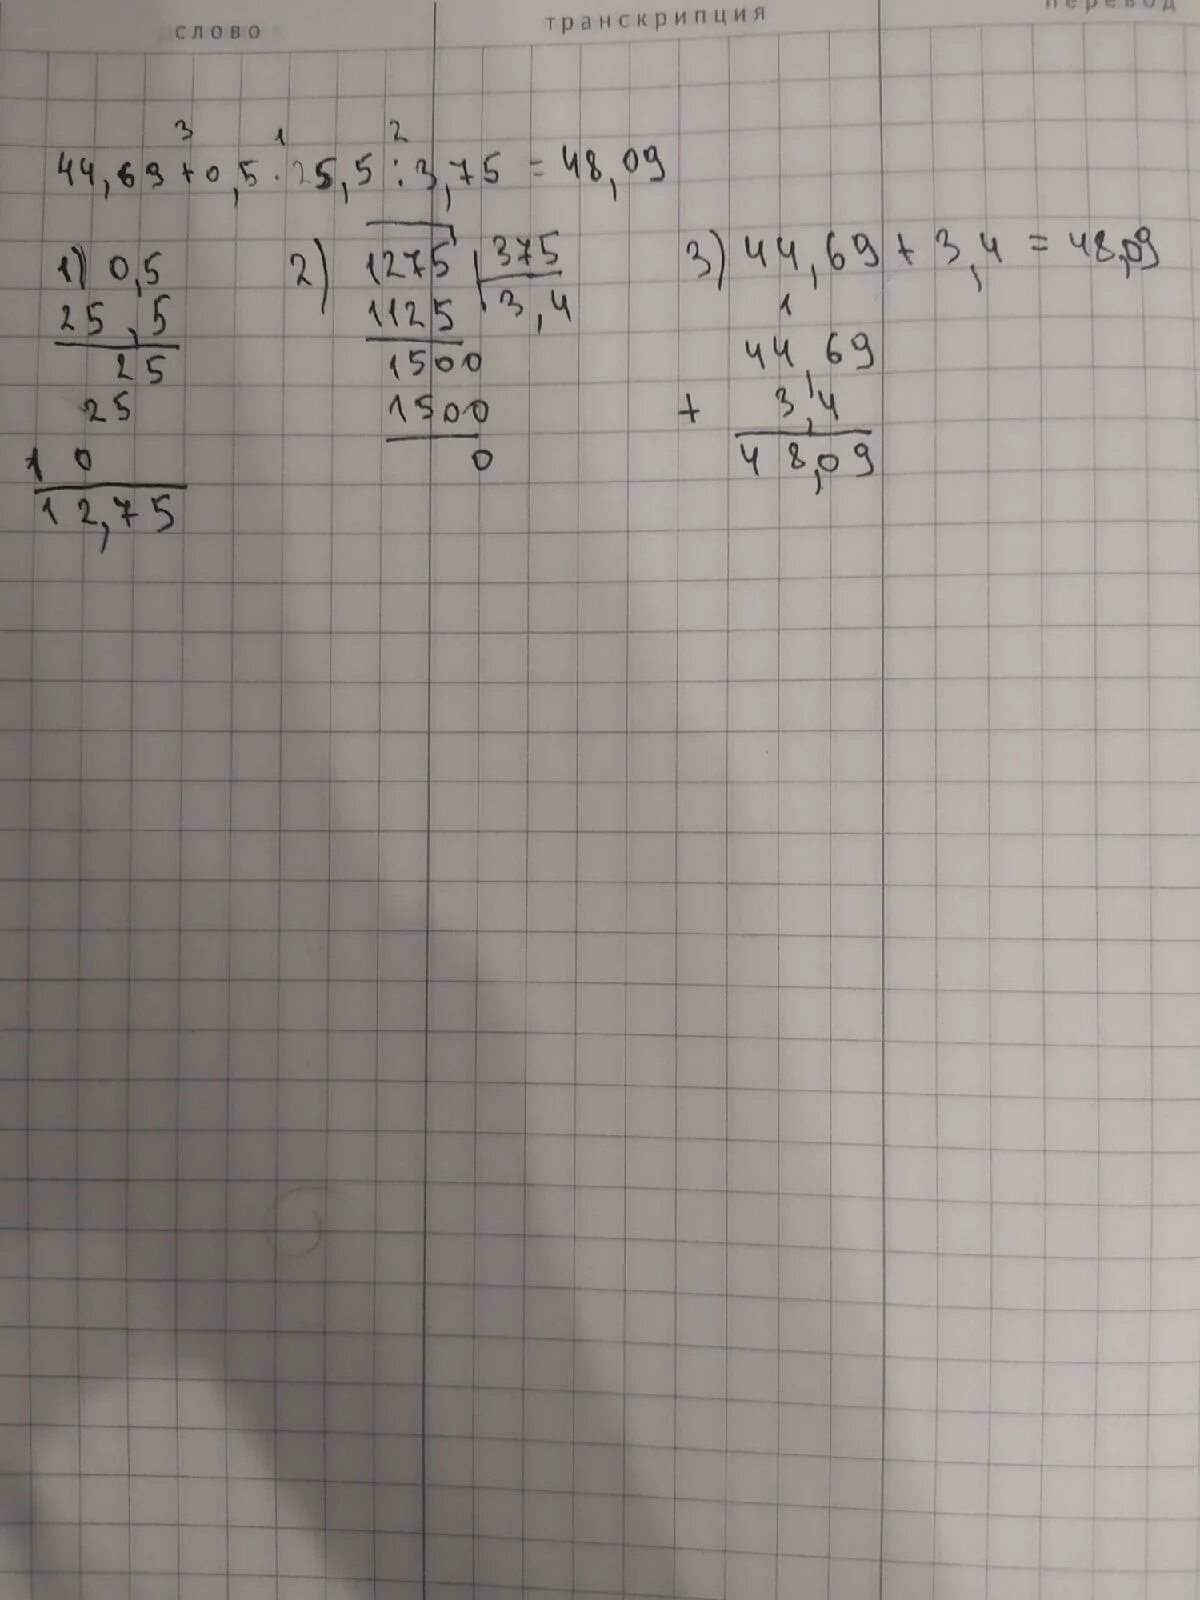 слово транскрипция перевод
3 1 2
44,69 + 0,5 · 25,5 : 3,75 = 48,09
1) 0,5
25,5
25
25
10
12,75
2) 1275 375
1125 3,4
1500
1500
0
3) 44,69 + 3,4 = 48,09
1
44,69
+ 3,4
48,09